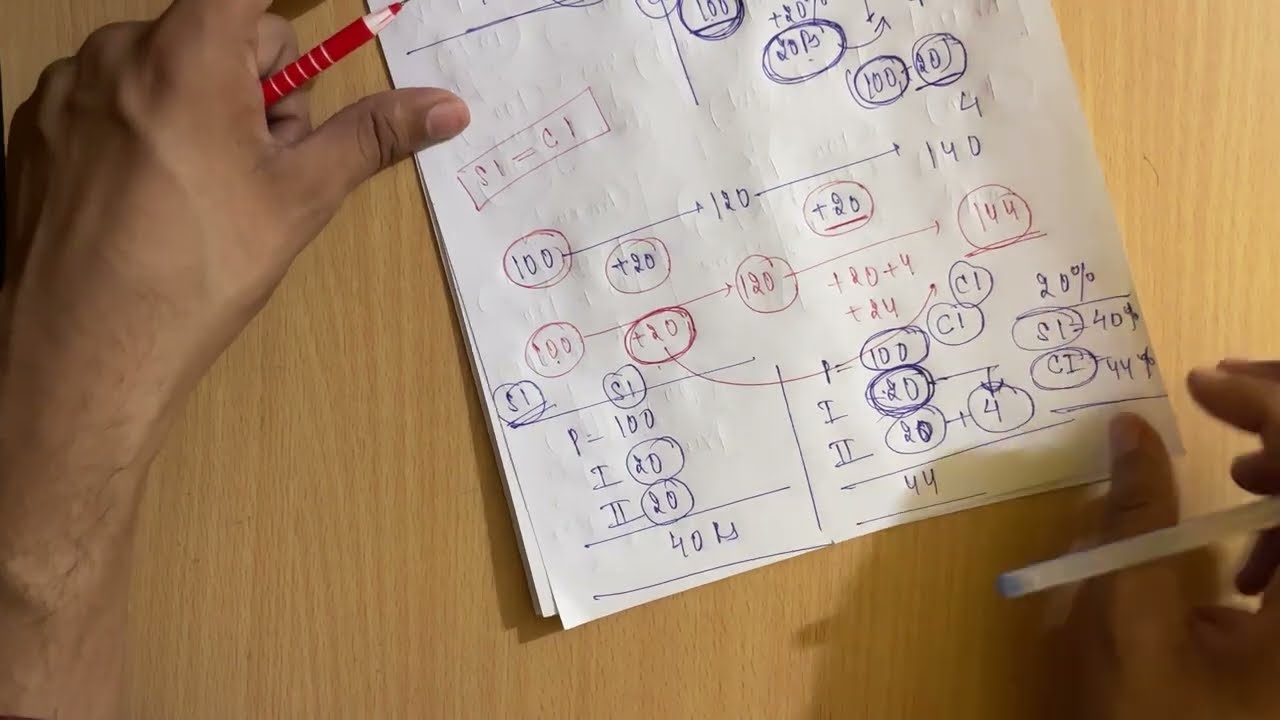 100 +20%
20 Rs
100 20
4
SI = CI
100 +20 120 +20 140
100 +20 120 +20+4 144
+24
SI SI
P = 100
I 20
II 20
40 Rs
CI
CI
P = 100
I 20
II 20 + 4
44
20%
SI = 40%
CI = 44%